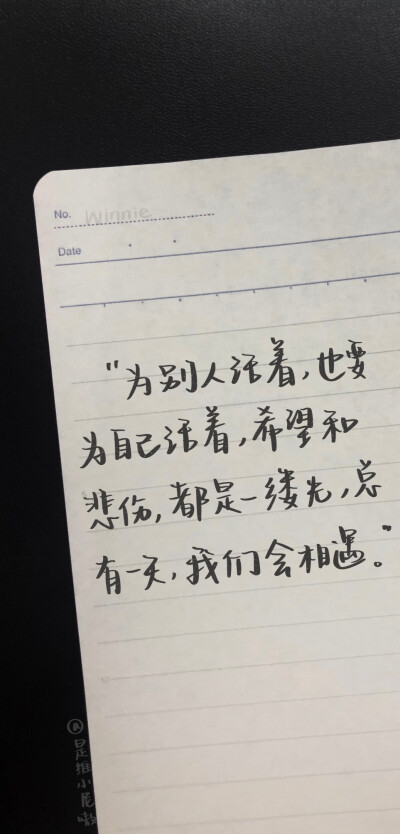 No. Winnie
Date
"为别人活着,也要
为自己活着,希望和
悲伤,都是一缕光,总
有一天,我们会相遇。"